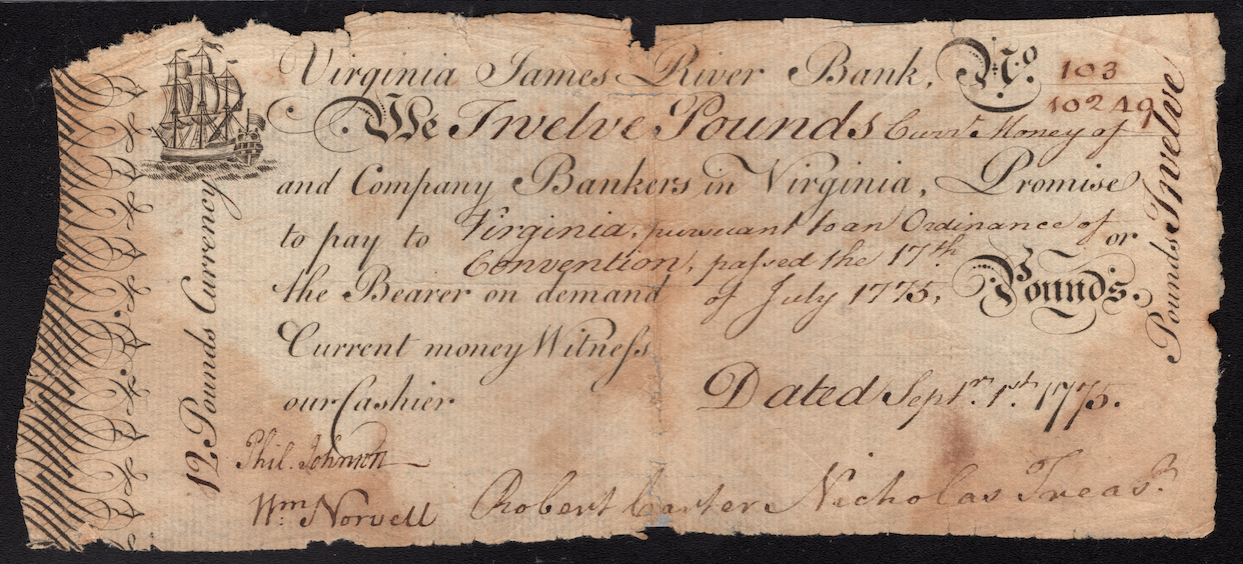 Virginia James River Bank, No. 103
10249
We Twelve Pounds Curr.t Money of
and Company Bankers in Virginia, Promise
to pay to Virginia, pursuant to an Ordinance of or
Convention, paſsed the 17th
the Bearer on demand of July 1775, Pounds.
Current money Witneſs
our Cashier
Dated Septr. 1st. 1775.
Phil. Johnson
Wm Norvell Robert Carter Nicholas Treasr.
12 Pounds Currency
Pounds Twelve